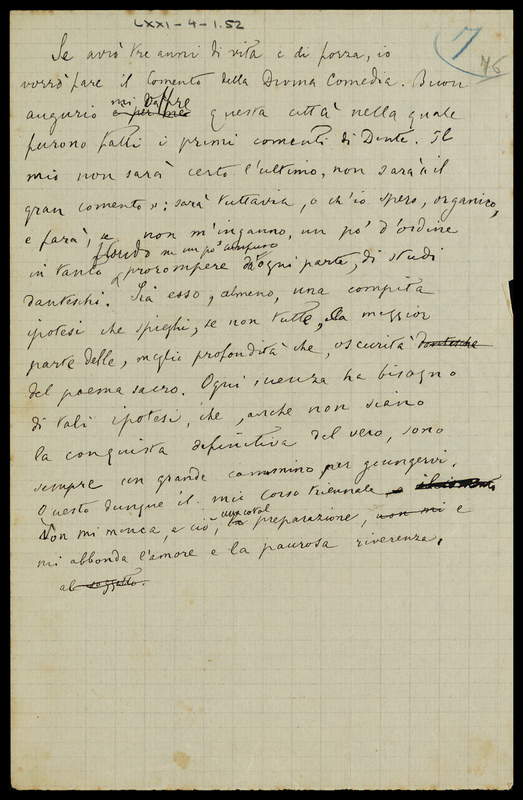 LXXI-4-1.52
7
76
Se avrò tre anni di vita e di forza, io
vorrò fare il Comento della Divina Comedia. Buon
augurio e per me mi dappre questa città nella quale
furono fatti i primi comenti di Dante. Il
mio non sarà certo l'ultimo, non sarà "il
gran comento": sarà tuttavia, o ch'io spero, organico,
e farà, se non m'inganno, un po' d'ordine
florido ma un po' confuso
in tanto prorompere d'ogni parte, di studi
danteschi. Sia esso, almeno, una compita
ipotesi che spieghi, se non tutte, la maggior
parte delle, meglio profondità che, oscurità dantesche
del poema sacro. Ogni scienza ha bisogno
di tali ipotesi, che, anche non siano
la conquista definitiva del vero, sono
sempre un grande cammino per giungervi.
Questo dunque il mio corso triennale e il comento
Non mi manca, a ciò, una cotal la preparazione, non mi e
mi abbonda l'amore e la paurosa riverenza,
al soggetto.